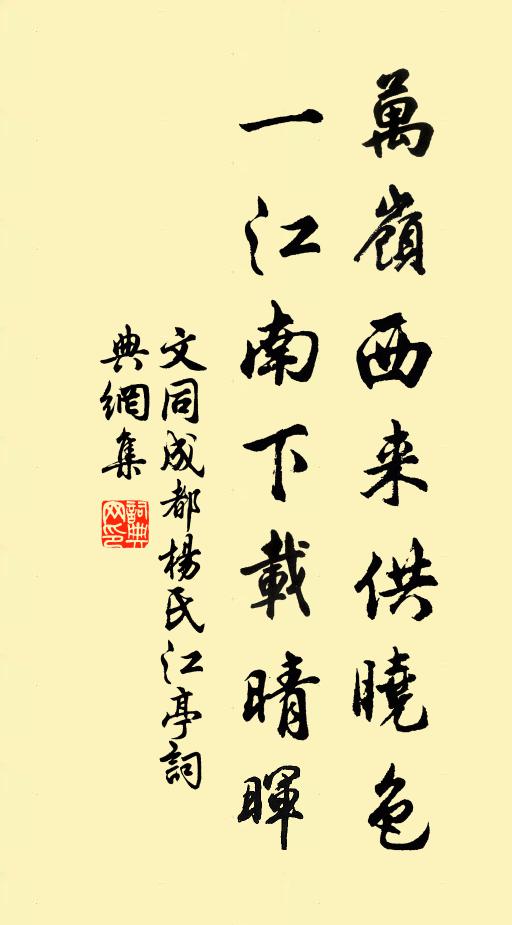 萬嶺西来供曉色
一江南下載晴暉
文同成都楊氏江亭詞
典網集
詞典網印